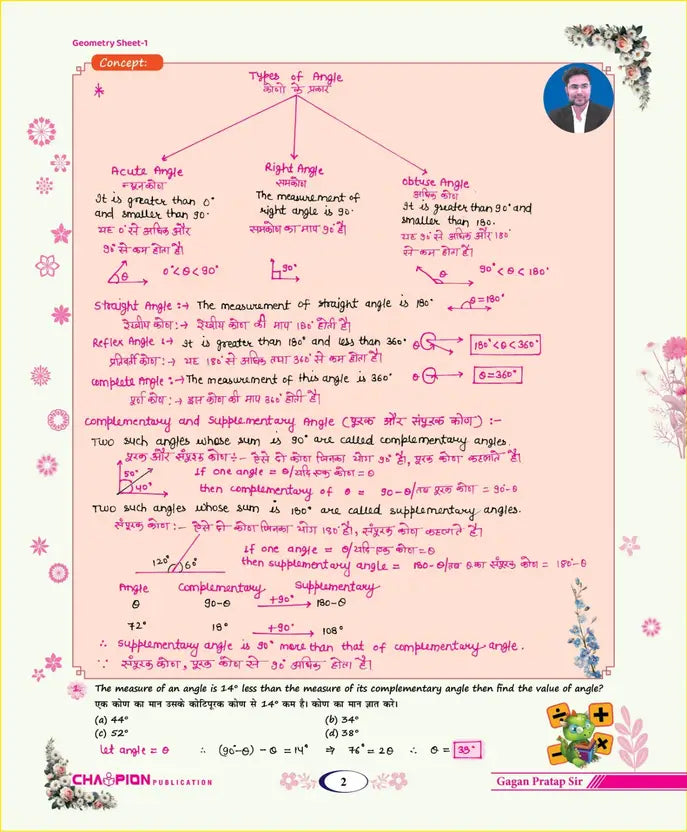 Geometry Sheet-1
Concept:
*
Types of Angle
कोणों के प्रकार
Acute Angle
न्यूनकोण
It is greater than 0°
and smaller than 90.
यह 0° से अधिक और
90° से कम होता है।
θ 0°<θ<90°
Right Angle
समकोण
The measurement of
right angle is 90.
समकोण का माप 90° है।
90°
obtuse Angle
अधिक कोण
It is greater than 90° and
smaller than 180.
यह 90° से अधिक और 180°
से कम होता है।
θ 90°<θ<180°
Straight Angle :→ The measurement of straight angle is 180° θ=180°
रेखीय कोण :→ रेखीय कोण की माप 180° होती है।
Reflex Angle :→ It is greater than 180° and less than 360° θ → 180°<θ<360°
प्रतिवर्ती कोण :→ यह 180° से अधिक तथा 360° से कम होता है।
complete Angle :→ The measurement of this angle is 360° θ → θ=360°
पूर्ण कोण :→ इस कोण की माप 360° होती है।
Complementary and Supplementary Angle (पूरक और संपूरक कोण) :-
Two such angles whose sum is 90° are called complementary angles.
पूरक और संपूरक कोण :- ऐसे दो कोण जिनका योग 90° है, पूरक कोण कहलाते है।
50°
40°
If one angle = θ/यदि एक कोण = θ
then complementary of θ = 90-θ/तब पूरक कोण = 90°-θ
Two such angles whose sum is 180° are called supplementary angles.
संपूरक कोण :- ऐसे दो कोण जिनका योग 180° है, संपूरक कोण कहलाते है।
120° 60°
If one angle = θ/यदि एक कोण = θ
then supplementary angle = 180-θ/तब θ का संपूरक कोण = 180°-θ
Angle Complementary Supplementary
θ 90-θ +90° 180-θ
72° 18° +90° 108°
∴ Supplementary angle is 90° more than that of complementary angle.
∵ संपूरक कोण, पूरक कोण से 90° अधिक होता है।
1. The measure of an angle is 14° less than the measure of its complementary angle then find the value of angle?
एक कोण का मान उसके कोटिपूरक कोण से 14° कम है। कोण का मान ज्ञात करें।
(a) 44° (b) 34°
(c) 52° (d) 38°
let angle = θ ∴ (90°-θ) - θ = 14° ⇒ 76° = 2θ ∴ θ = 38°
CHAMPION PUBLICATION
2
Gagan Pratap Sir